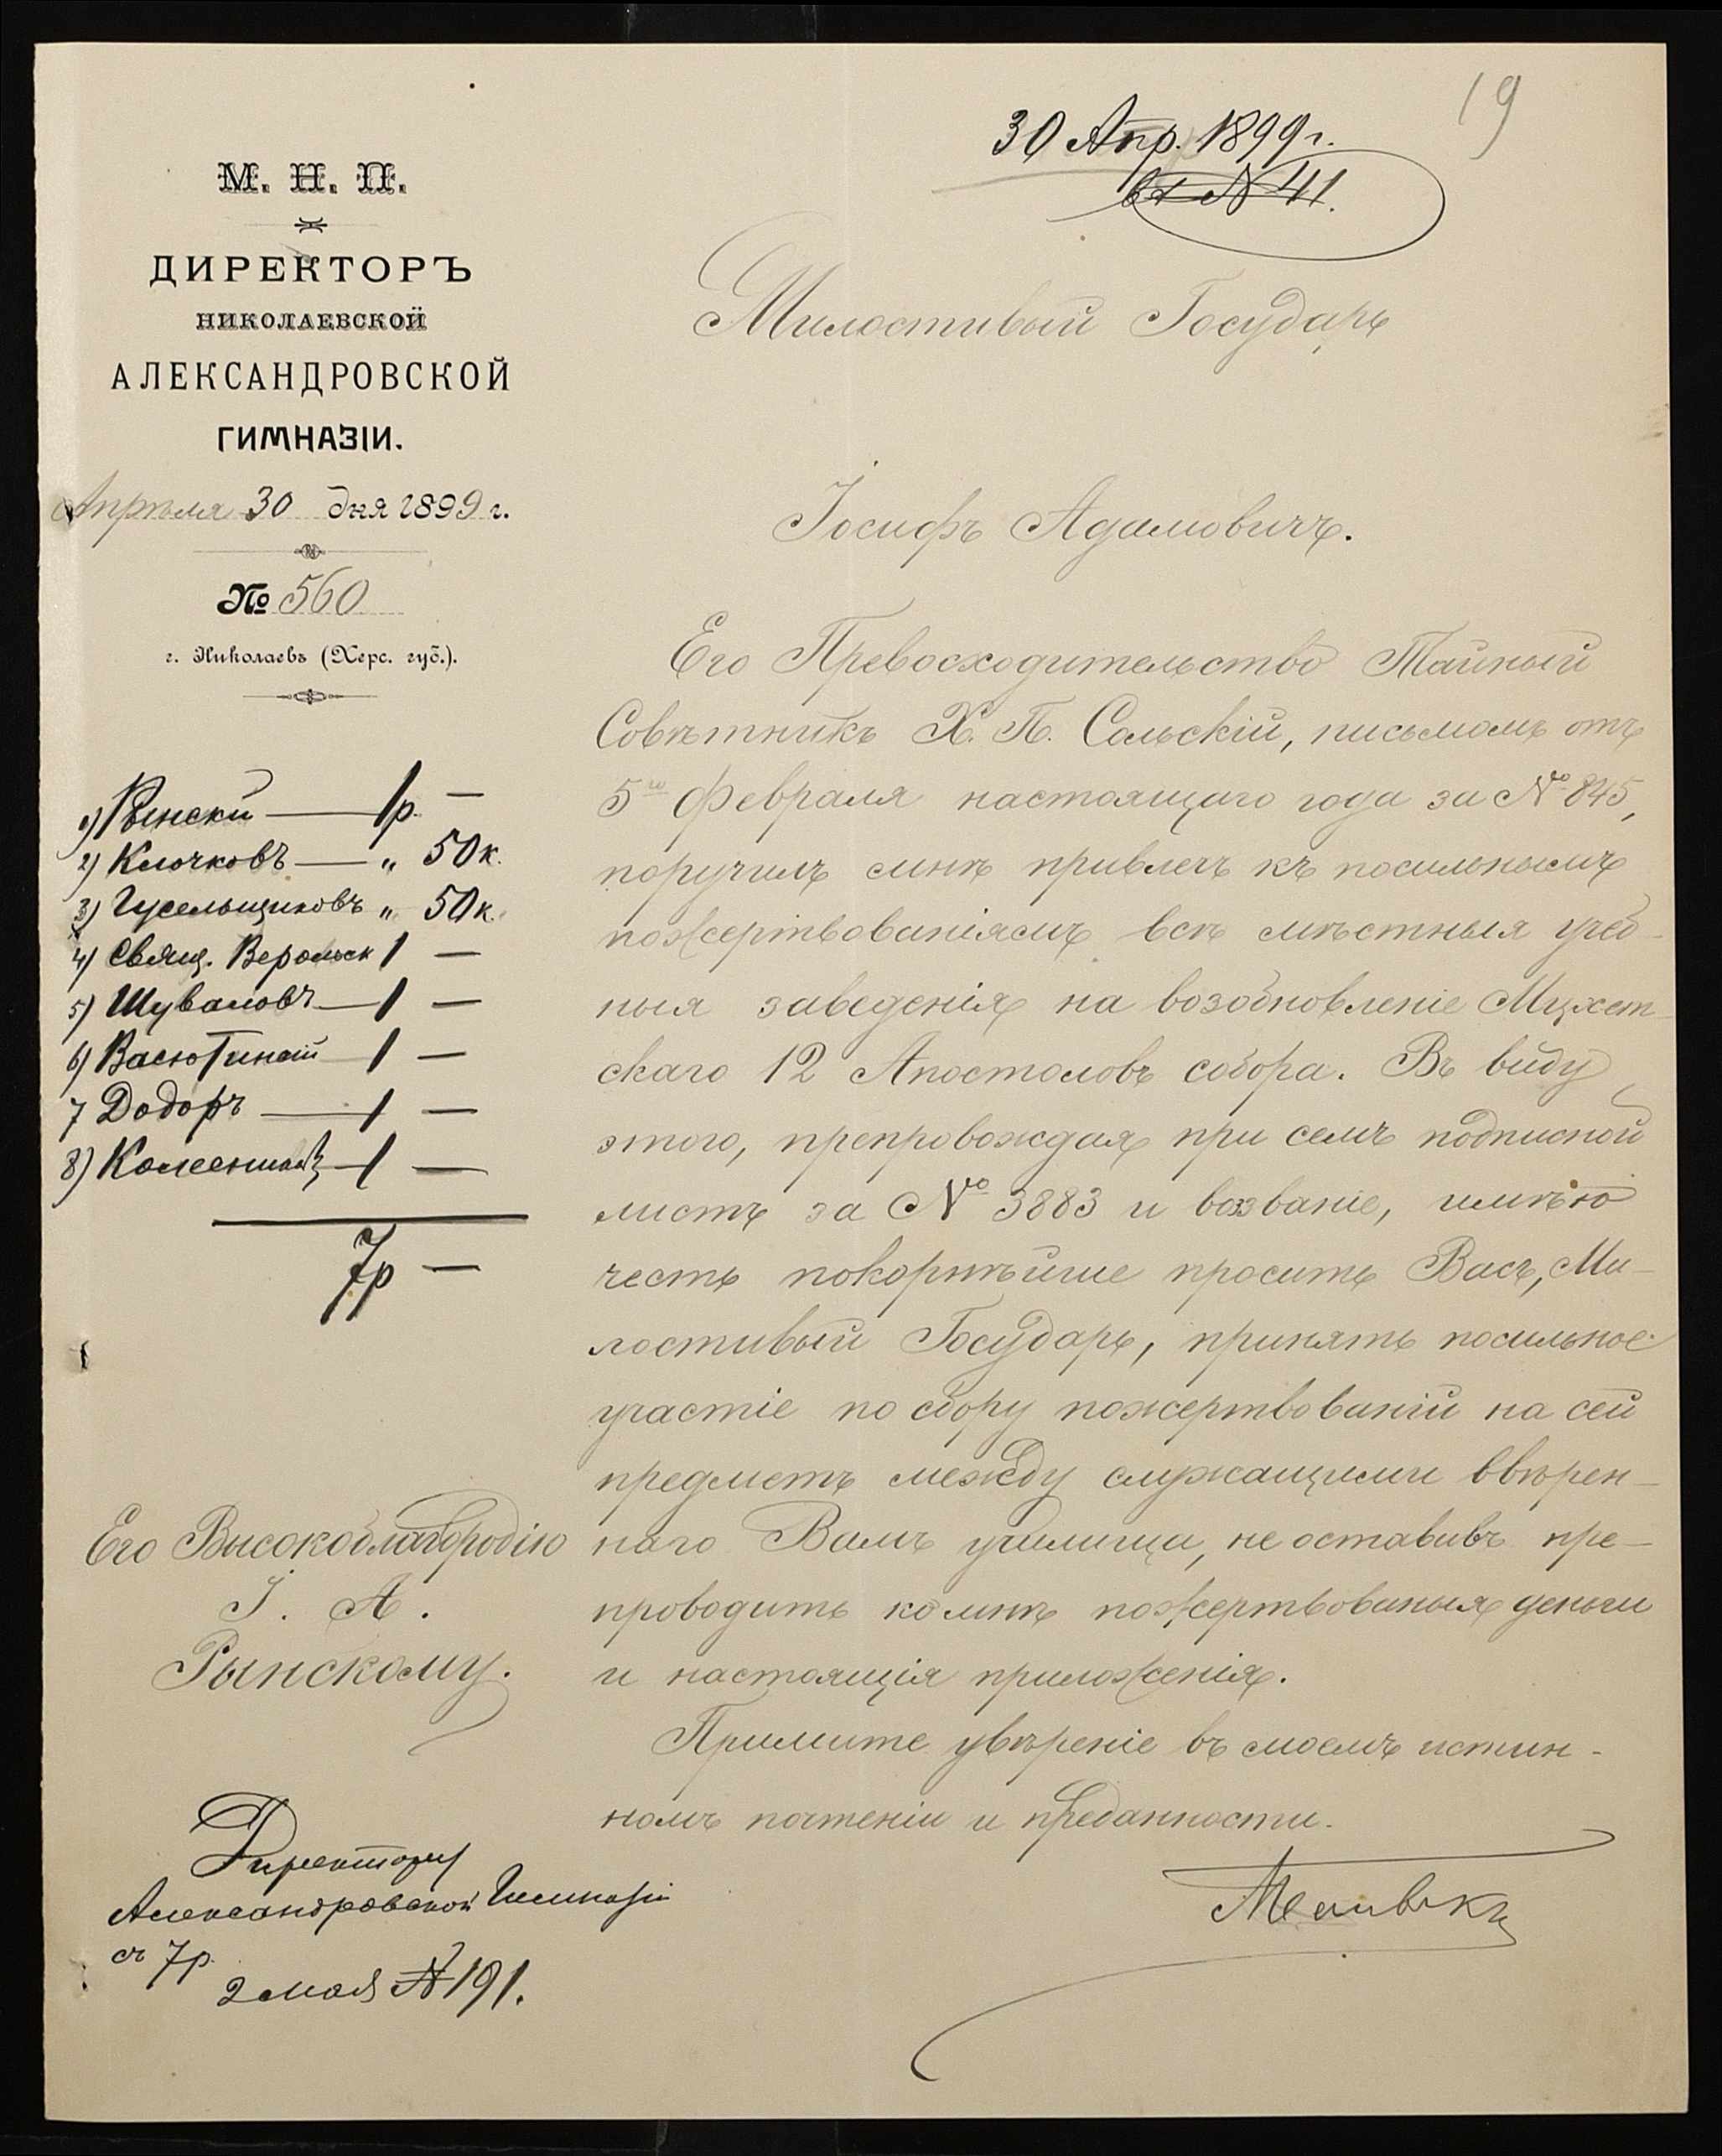 19
30 Апр. 1899 г.
вх № 41.
М. Н. П.
ДИРЕКТОРЪ
НИКОЛАЕВСКОЙ
АЛЕКСАНДРОВСКОЙ
ГИМНАЗІИ.
Апрѣля 30 дня 1899 г.
№ 560
г. Николаевъ (Херс. губ.).
1) Рынскій — 1 р. —
2) Клочковъ — „ 50 к.
3) Гусельщиковъ „ 50 к.
4) Свящ. 1 —
5) Шуваловъ — 1 —
6) Васютинскій 1 —
7 Додоръ — 1 —
8) Колесник — 1 —
7 р —
Его Высокоблагородію
І. А.
Рынскому.
Директору
Александровской Гимназіи
съ 7 р.
2 мая № 191.
Милостивый Государь
Іосифъ Адамовичъ.
Его Превосходительство Тайный
Совѣтникъ Х. П. Сольскій, письмомъ отъ
5го Февраля настоящаго года за № 845,
поручилъ мнѣ привлечь къ посильнымъ
пожертвованіямъ всѣ мѣстныя учеб-
ныя заведенія на возобновленіе Мцхет-
скаго 12 Апостоловъ собора. Въ виду
этого, препровождая при семъ подписной
листъ за № 3883 и воззваніе, имѣю
честь покорнѣйше просить Васъ, Ми-
лостивый Государь, принять посильное
участіе по сбору пожертвованій на сей
предметъ между служащими ввѣрен-
наго Вамъ училища, не оставивъ пре-
проводить ко мнѣ пожертвованыя деньги
и настоящія приложенія.
Примите увѣреніе въ моемъ истин-
номъ почтеніи и преданности.